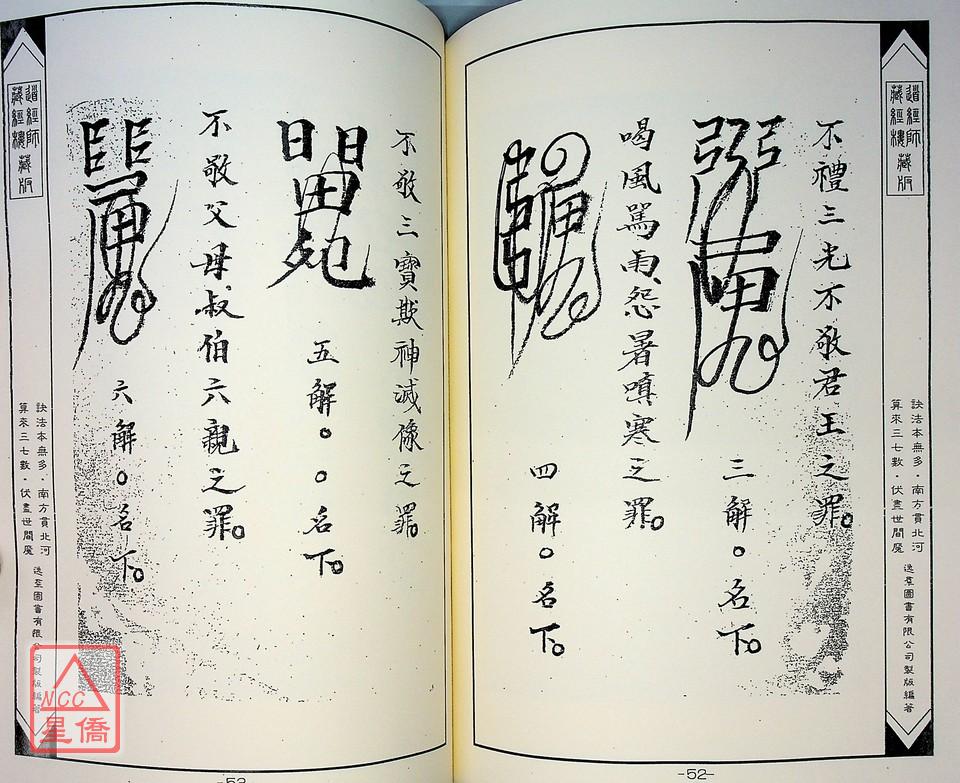 道經師
藏經樓
藏版
訣法本無多．南方貫北河
算來三七數．伏盡世間魔
逸羣圖書有限公司製版編著
不禮三光不敬君王之罪。
三解。名下。
喝風罵雨、怨暑嗔寒之罪。
四解。名下。
-52-
不敬三寶欺神滅像之罪。
五解。○名下。
不敬父母叔伯六親之罪。
六解。名下。
-53-
道經師
藏經樓
藏版
訣法本無多．南方貫北河
算來三七數．伏盡世間魔
逸羣圖書有限公司製版編著
NCC
星僑